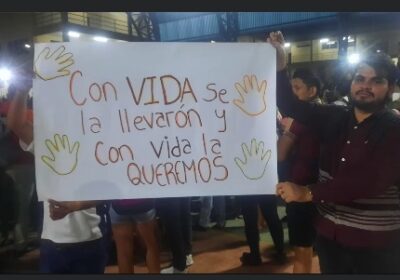 Con VIDA se
la llevarón y
Con vida la
QUEREMOS